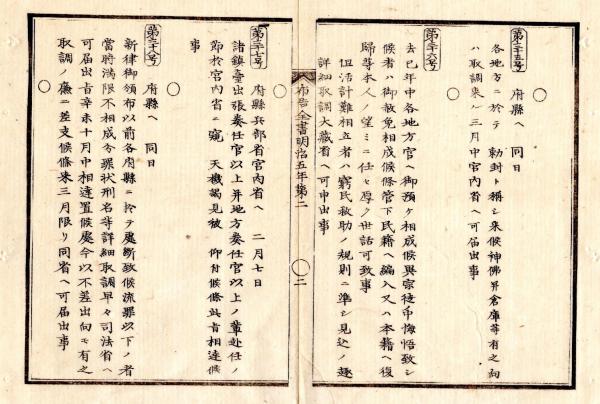 第三十五号
府縣ヘ 同日
各地方ニ於テ 勅封ト稱シ来候神佛并倉庫等有之向
ハ取調来ル三月中宮内省ヘ可届出事
第三十六号
府縣ヘ 同日
去巳年中各地方官ヘ御預ケ相成候異宗徒中悔悟致シ
候者ハ御赦免相成候條管下民籍ヘ編入又ハ本籍ヘ復
歸等本人ノ望ミニ任セ厚ク世話可致事
但活計難相立者ハ窮民救助ノ規則ニ準シ見込ノ趣
詳細取調大藏省ヘ可申出事
布告全書明治五年第二
二
第三十七号
府縣兵部省宮内省ヘ 二月七日
諸鎮臺出張奏任官以上并地方奏任官以上ノ輩赴任ノ
節於宮内省ニ窺 天機謁見被 仰付候條此旨相達候
事
第三十八号
府縣ヘ 同日
新律御頒布以前各府縣ニ於テ處断致候流罪以下ノ者
當時満限不相成分罪状刑名等詳細取調早々司法省ヘ
可届出旨辛未十月中相達置候處今以不差出向モ有之
取調ノ廉ニ差支候條来三月限リ同省ヘ可届出事